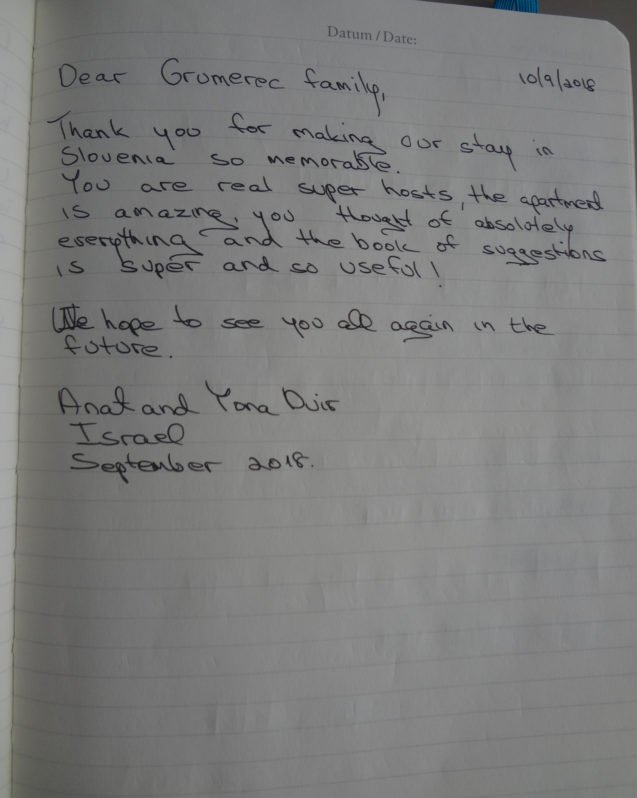 Datum / Date:
Dear Gromerec family,
10/9/2018
Thank you for making our stay in
Slovenia so memorable.
You are real super hosts, the apartment
is amazing, you thought of absolutely
everything and the book of suggestions
is super and so useful!
We hope to see you all again in the
future.
Anat and Yona
Israel
September 2018.